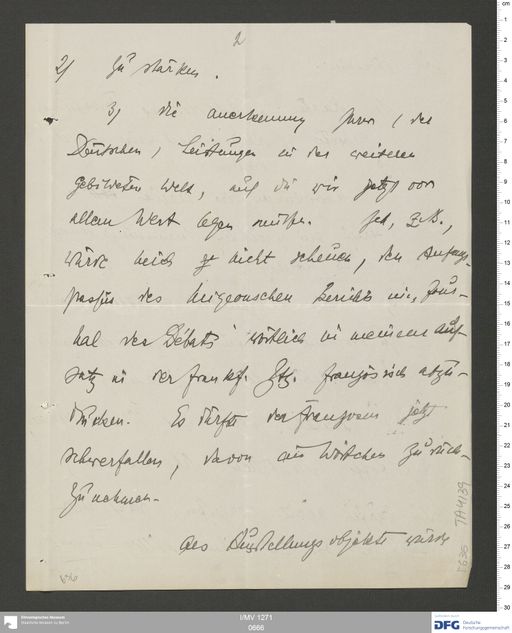 2
2) zu stärken.
3) die Anerkennung Ihrer (der
Deutschen) Leistungen in der weiteren
gebildeten Welt, auf die wir jetzt vor
allem Wert legen müssen. Ich, z.B.,
würde mich gar nicht scheuen, den Anfangs-
passus des Berichts im „Jour-
nal des Débats" wörtlich in meinem Auf-
satz in der Frankf. Ztg. französisch abzu-
drucken. Es dürfte den Franzosen jetzt
schwerfallen, davon ein Wörtchen zurück-
zunehmen.
Als Ausstellungsobjekte würde
TA 4139
Ethnologisches Museum
Staatliche Museen zu Berlin
I/MV 1271
0666
DFG Deutsche
Forschungsgemeinschaft